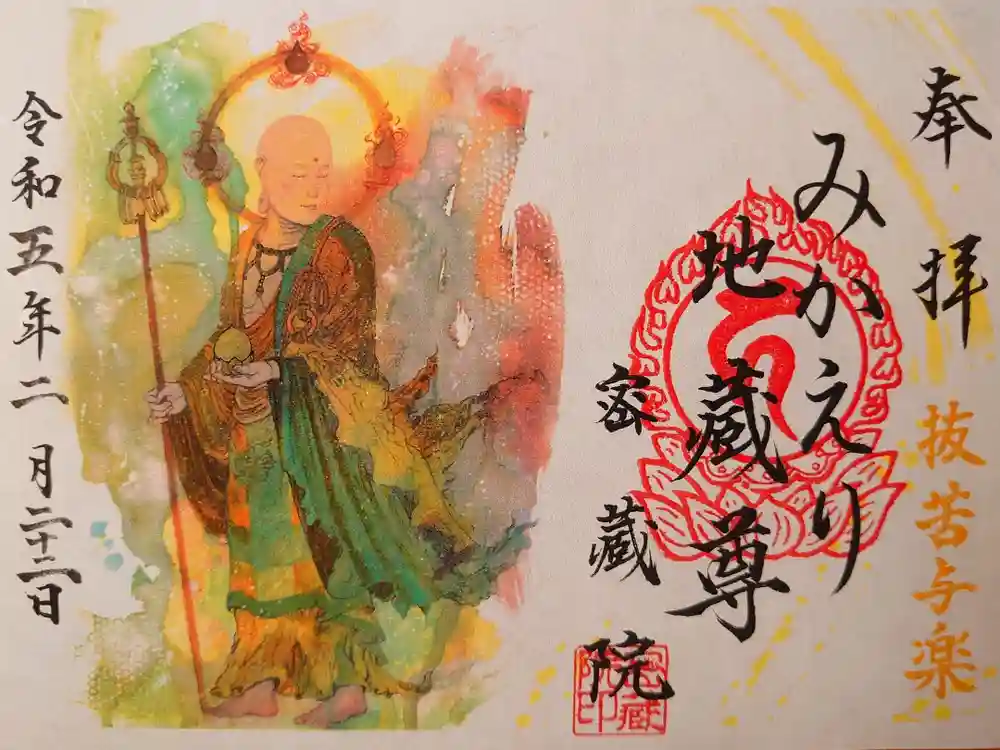 奉拝
抜苦与楽
みかえり
地蔵尊
密蔵院
密蔵院印
令和五年二月二十二日